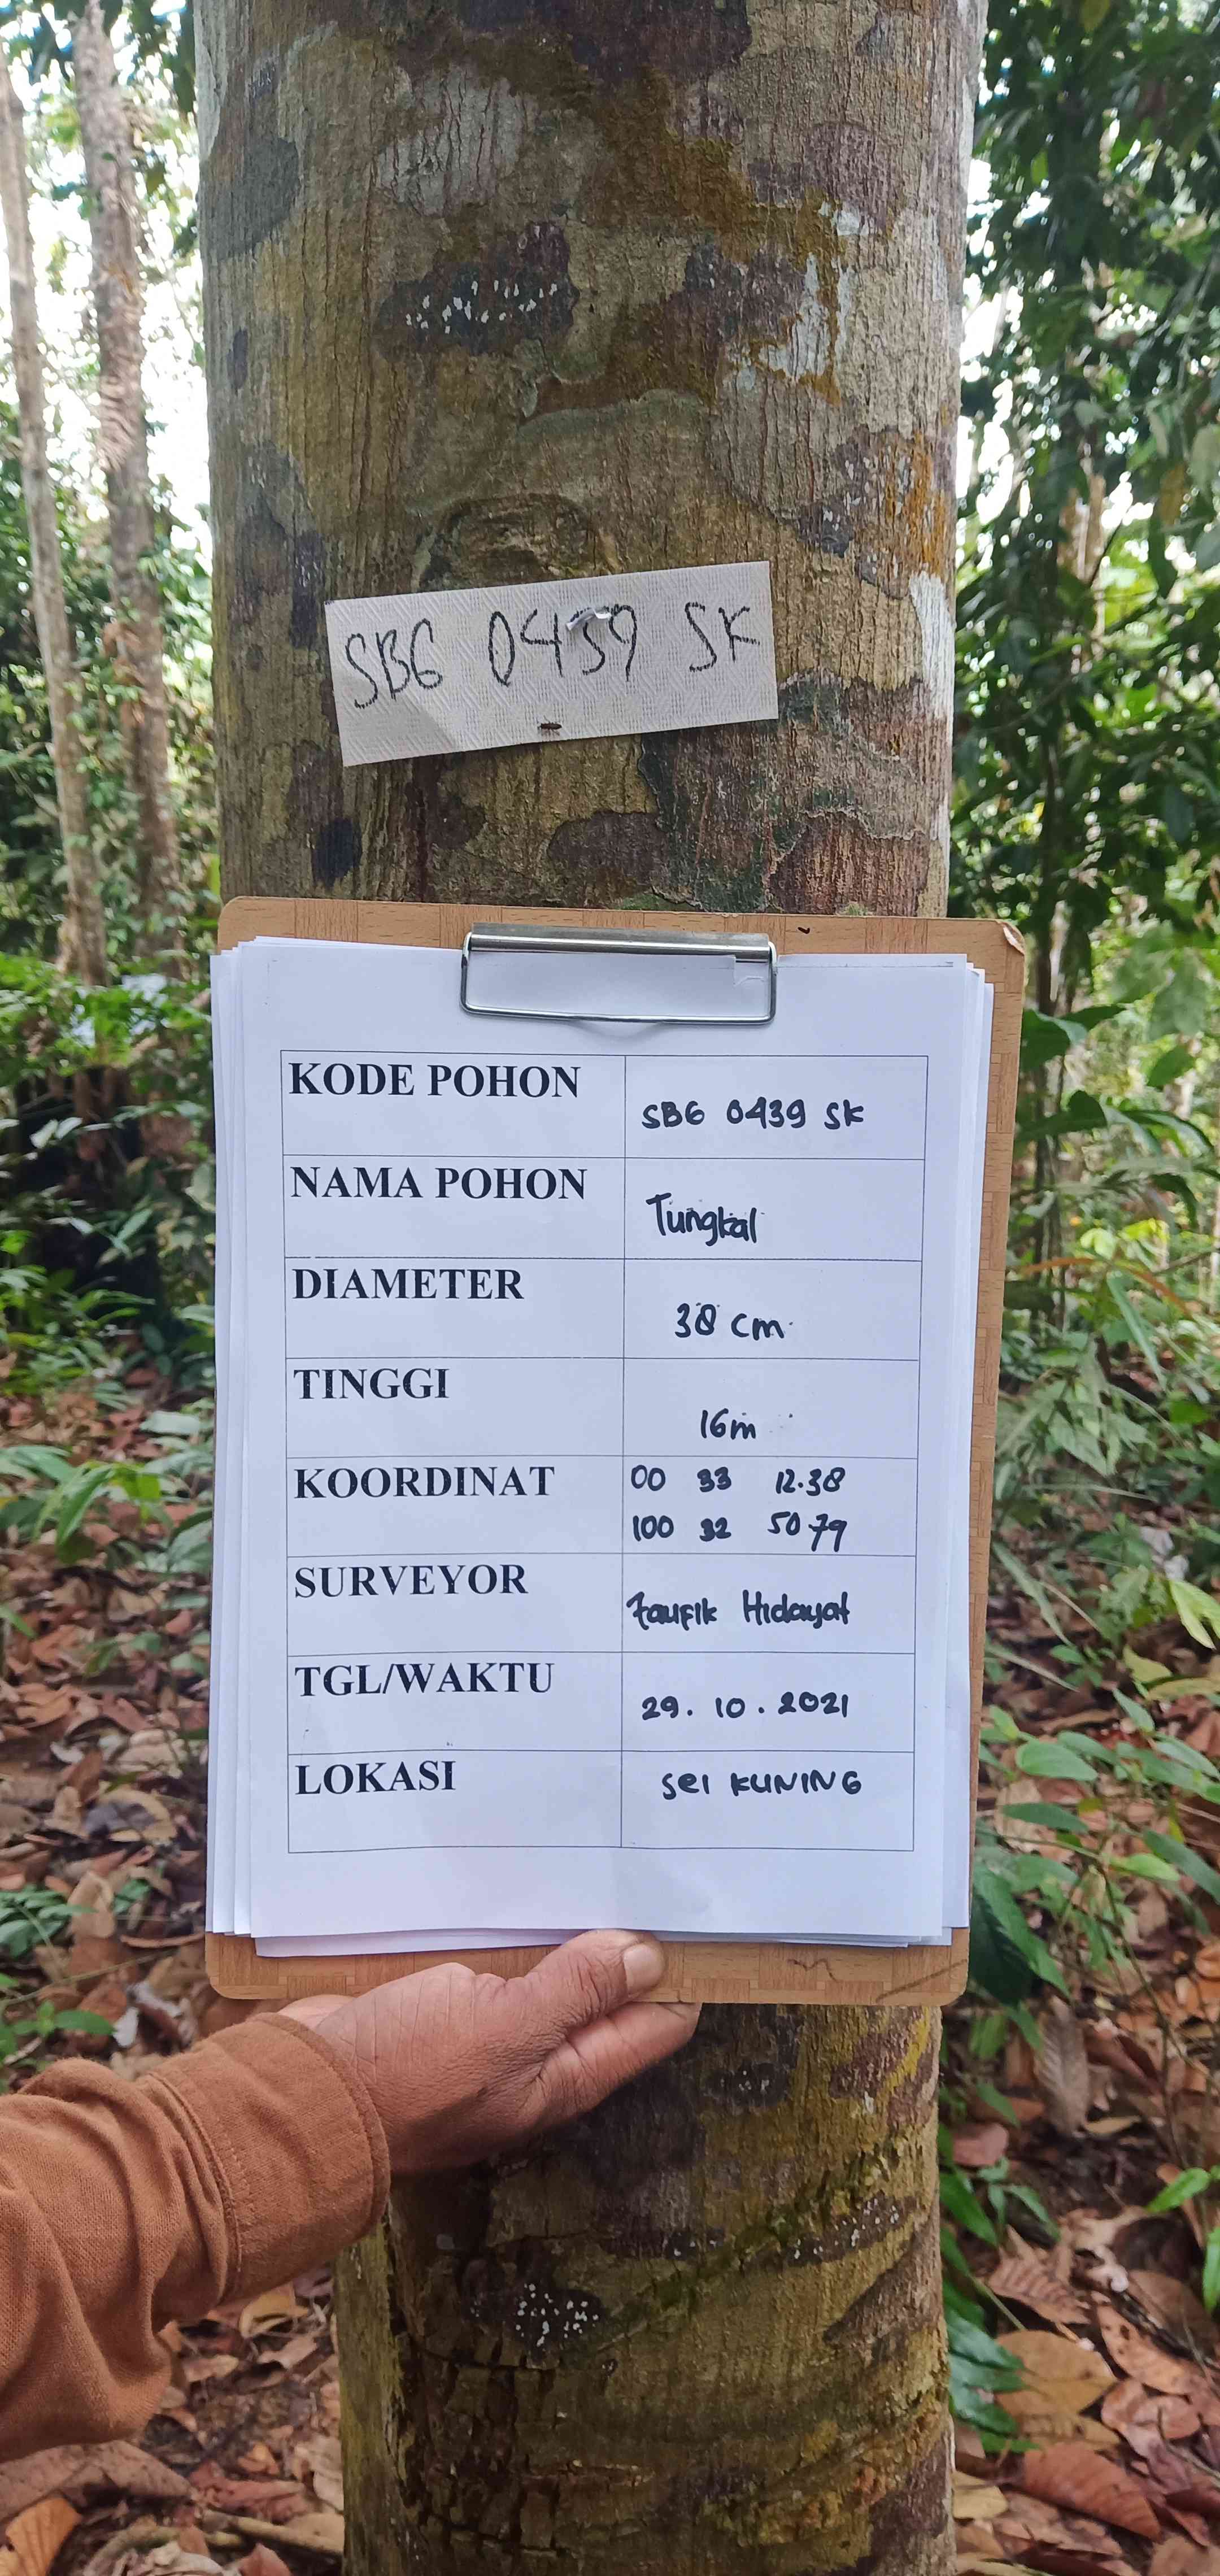 SBG 0439 SK
KODE POHON SBG 0439 SK
NAMA POHON Tungkal
DIAMETER 38 cm
TINGGI 16m
KOORDINAT 00 33 12.38
100 32 50 79
SURVEYOR Taufik Hidayat
TGL/WAKTU 29.10.2021
LOKASI Sei KUNING